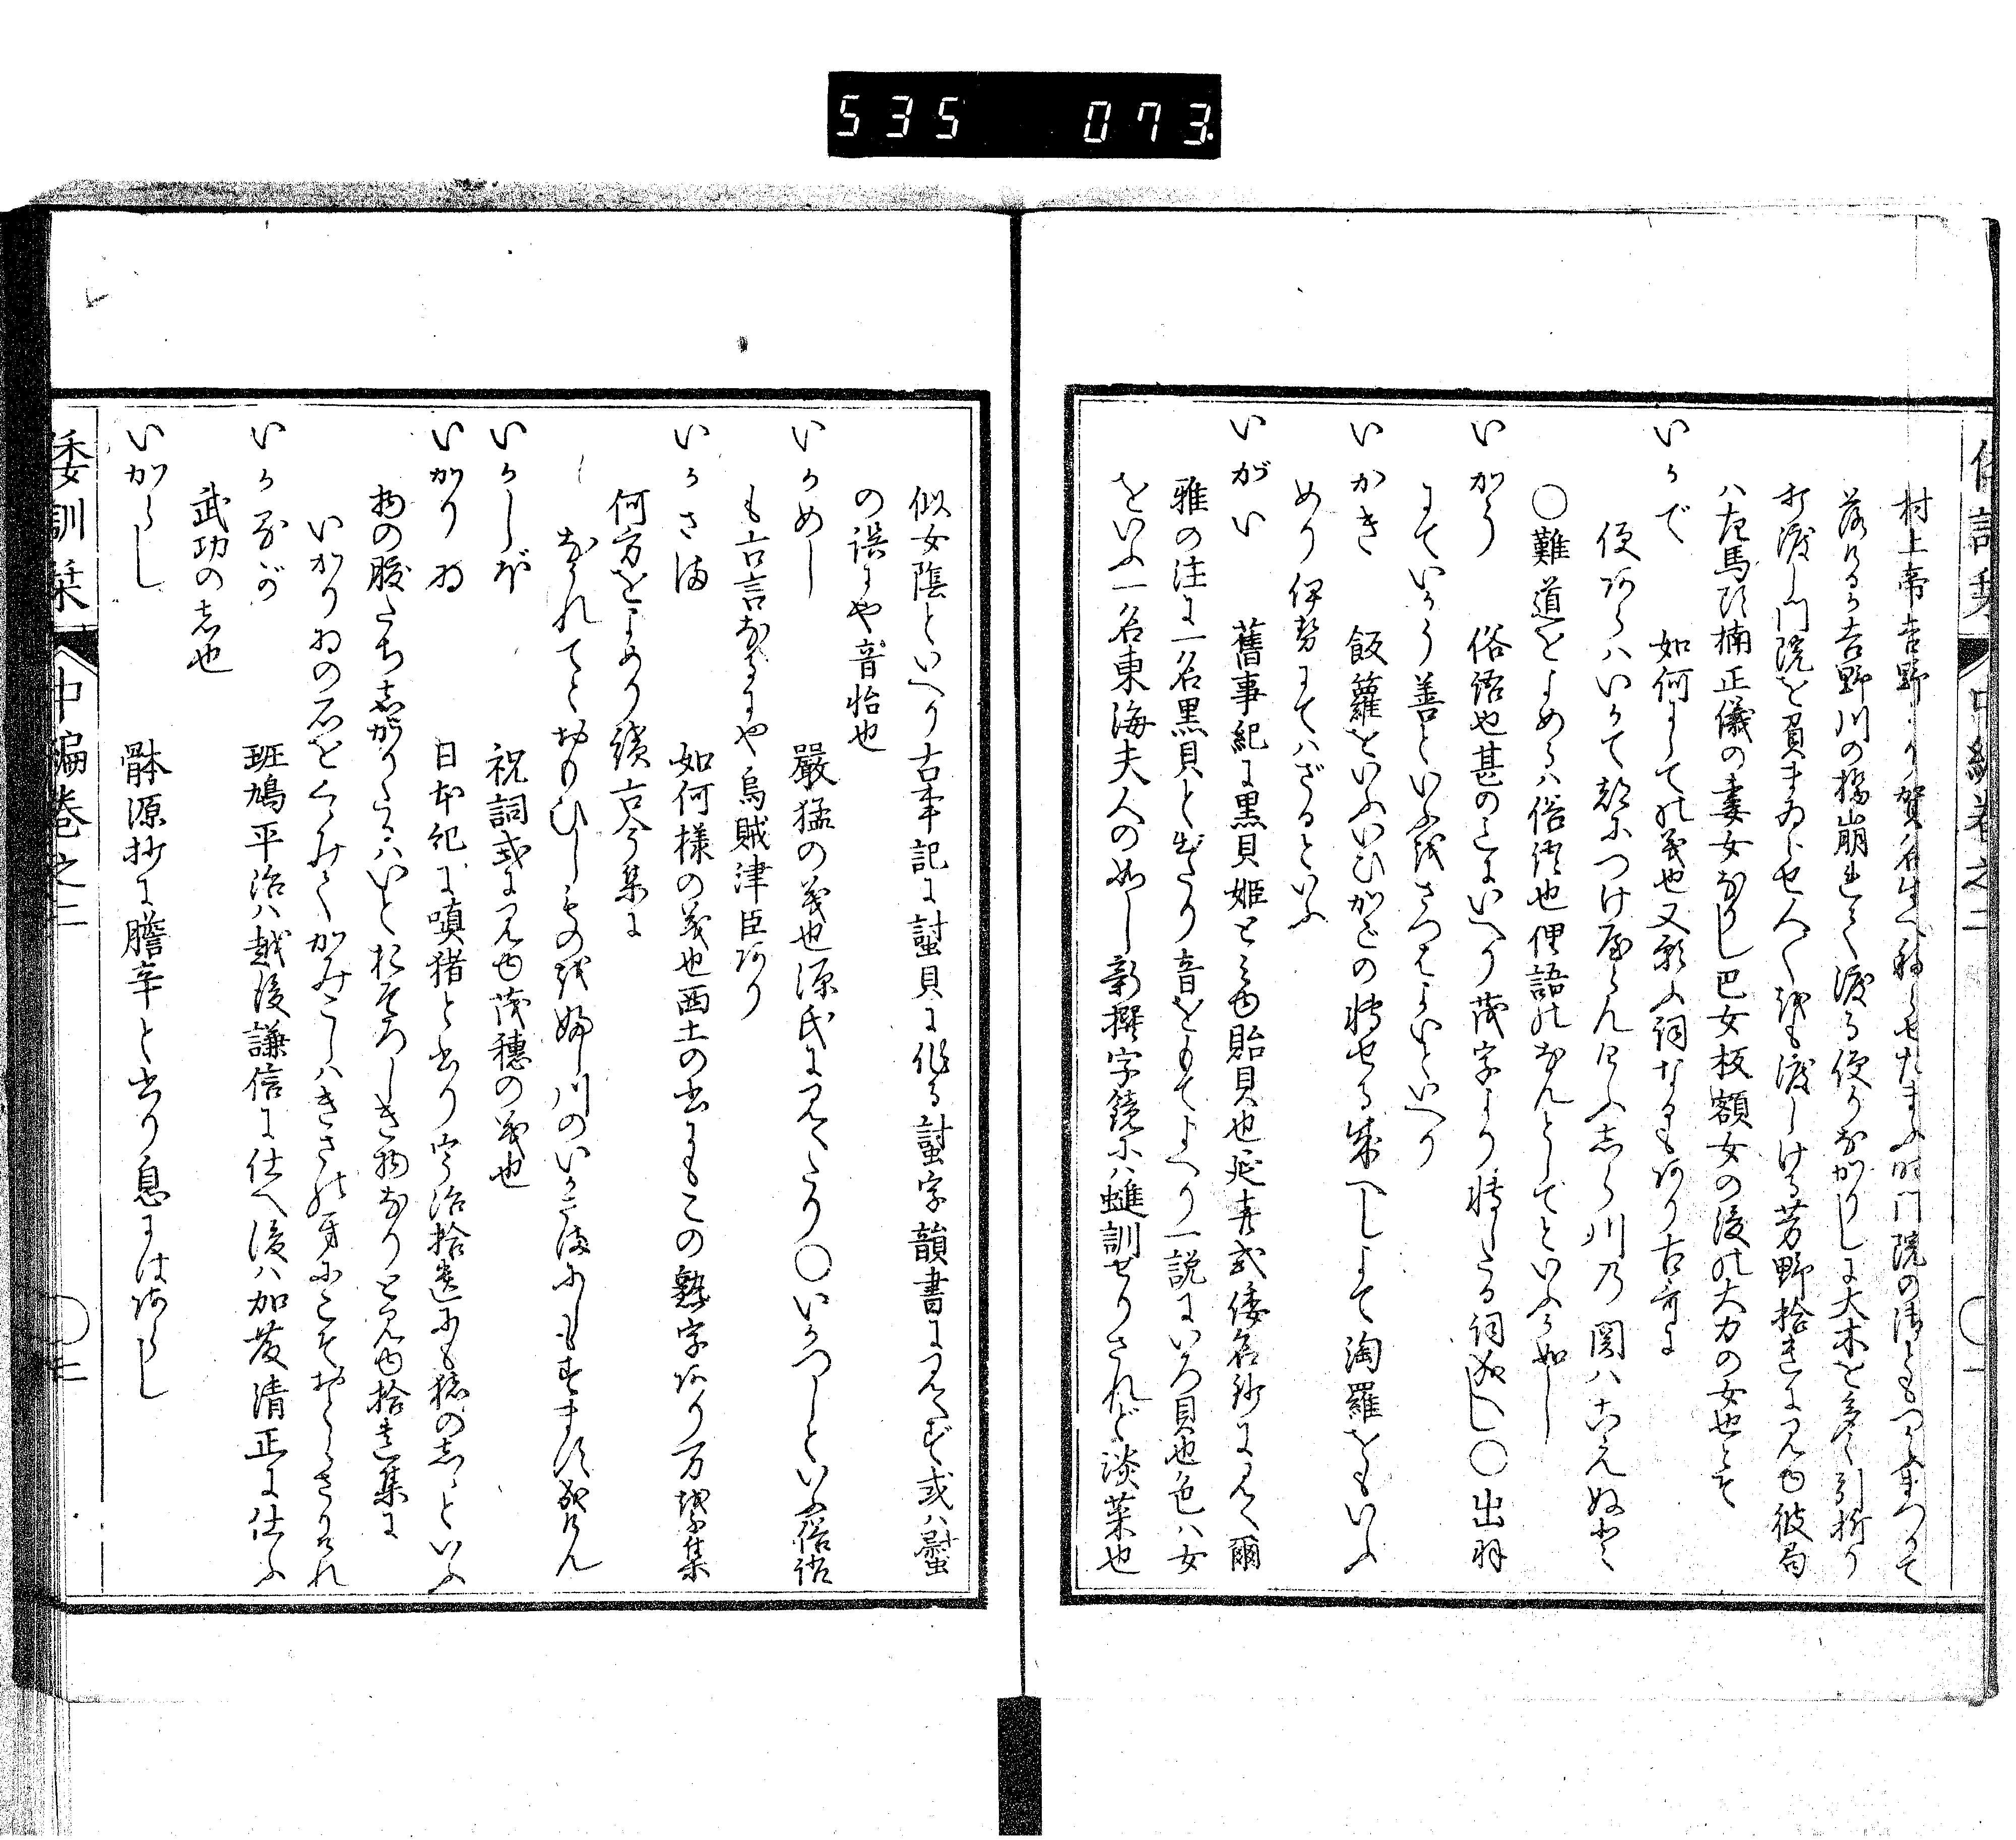 535 073
村上帝吉野より賀名生へ移らせたまふ時門院の御ともつかふまつりて
落けるか吉野川の橋崩れて渡る便りなかりしに大木を多く引折り
打渡し門院を負まゐらせ人々をも渡しける芳野拾遺に見ゆ彼局
ハ左馬頭楠正儀の妻女なりし巴女板額女の後の大力の女也とそ
いかで 如何にしての義也又願ふ詞なるもあり古哥に
便あらハいかて都につけ屋らんけふ志ら川乃関ハこえぬと
〇難道をよめるハ俗語也俚語のなんとしてといふか如し
いかう 俗語也甚のこゝにいへり茂字より転したる詞成へし〇出羽
にていかう善といふをさつはよいといへり
いかき 飯籮をいふいひかごの転せる成へしよて淘羅をもいふ
めり伊勢にてハざるといふ
いがい 舊事紀に黒貝姫と見ゆ貽貝也延喜式倭名鈔に見へ爾
雅の注に一名黒貝と出たり音をもてよへり一説にいろ貝也色ハ女
をいふ一名東海夫人の如し新撰字鏡にハ䗯訓せりされど淡菜也
倭訓栞 中編巻之二 〇一
似女陰といへり古事記に䚽貝に作る䚽字韻書に見へず或ハ蟚
の誤にや音怡也
いかめし 嚴猛の義也源氏に見へたり〇いかつしといふ俗語
も古言なるにや烏賊津臣あり
いかさま 如何様の義也西土の書にもこの熟字あり万葉集
何方をよめり續古今集に
ながれてとおもひしものを婦し川のいかさまにもすます成けん
いかしほ 祝詞式に見ゆ茂穗の義也
いかりゐ 日本紀に嗔猪と書り宇治拾遺にも猿の志ゝといふ
物の腹たち志かりたるハいとおそろしき物なりと見ゆ拾遺集に
いかりゐの石をくゝみてかみこしハきさの牙にこそおとらさりけれ
いかるが 班鳩平治ハ越後謙信に仕へ後ハ加藤清正に仕ふ
武功の志也
いからし 體源抄に膽辛と書り息にはあらし
倭訓栞 中編巻之二 〇二